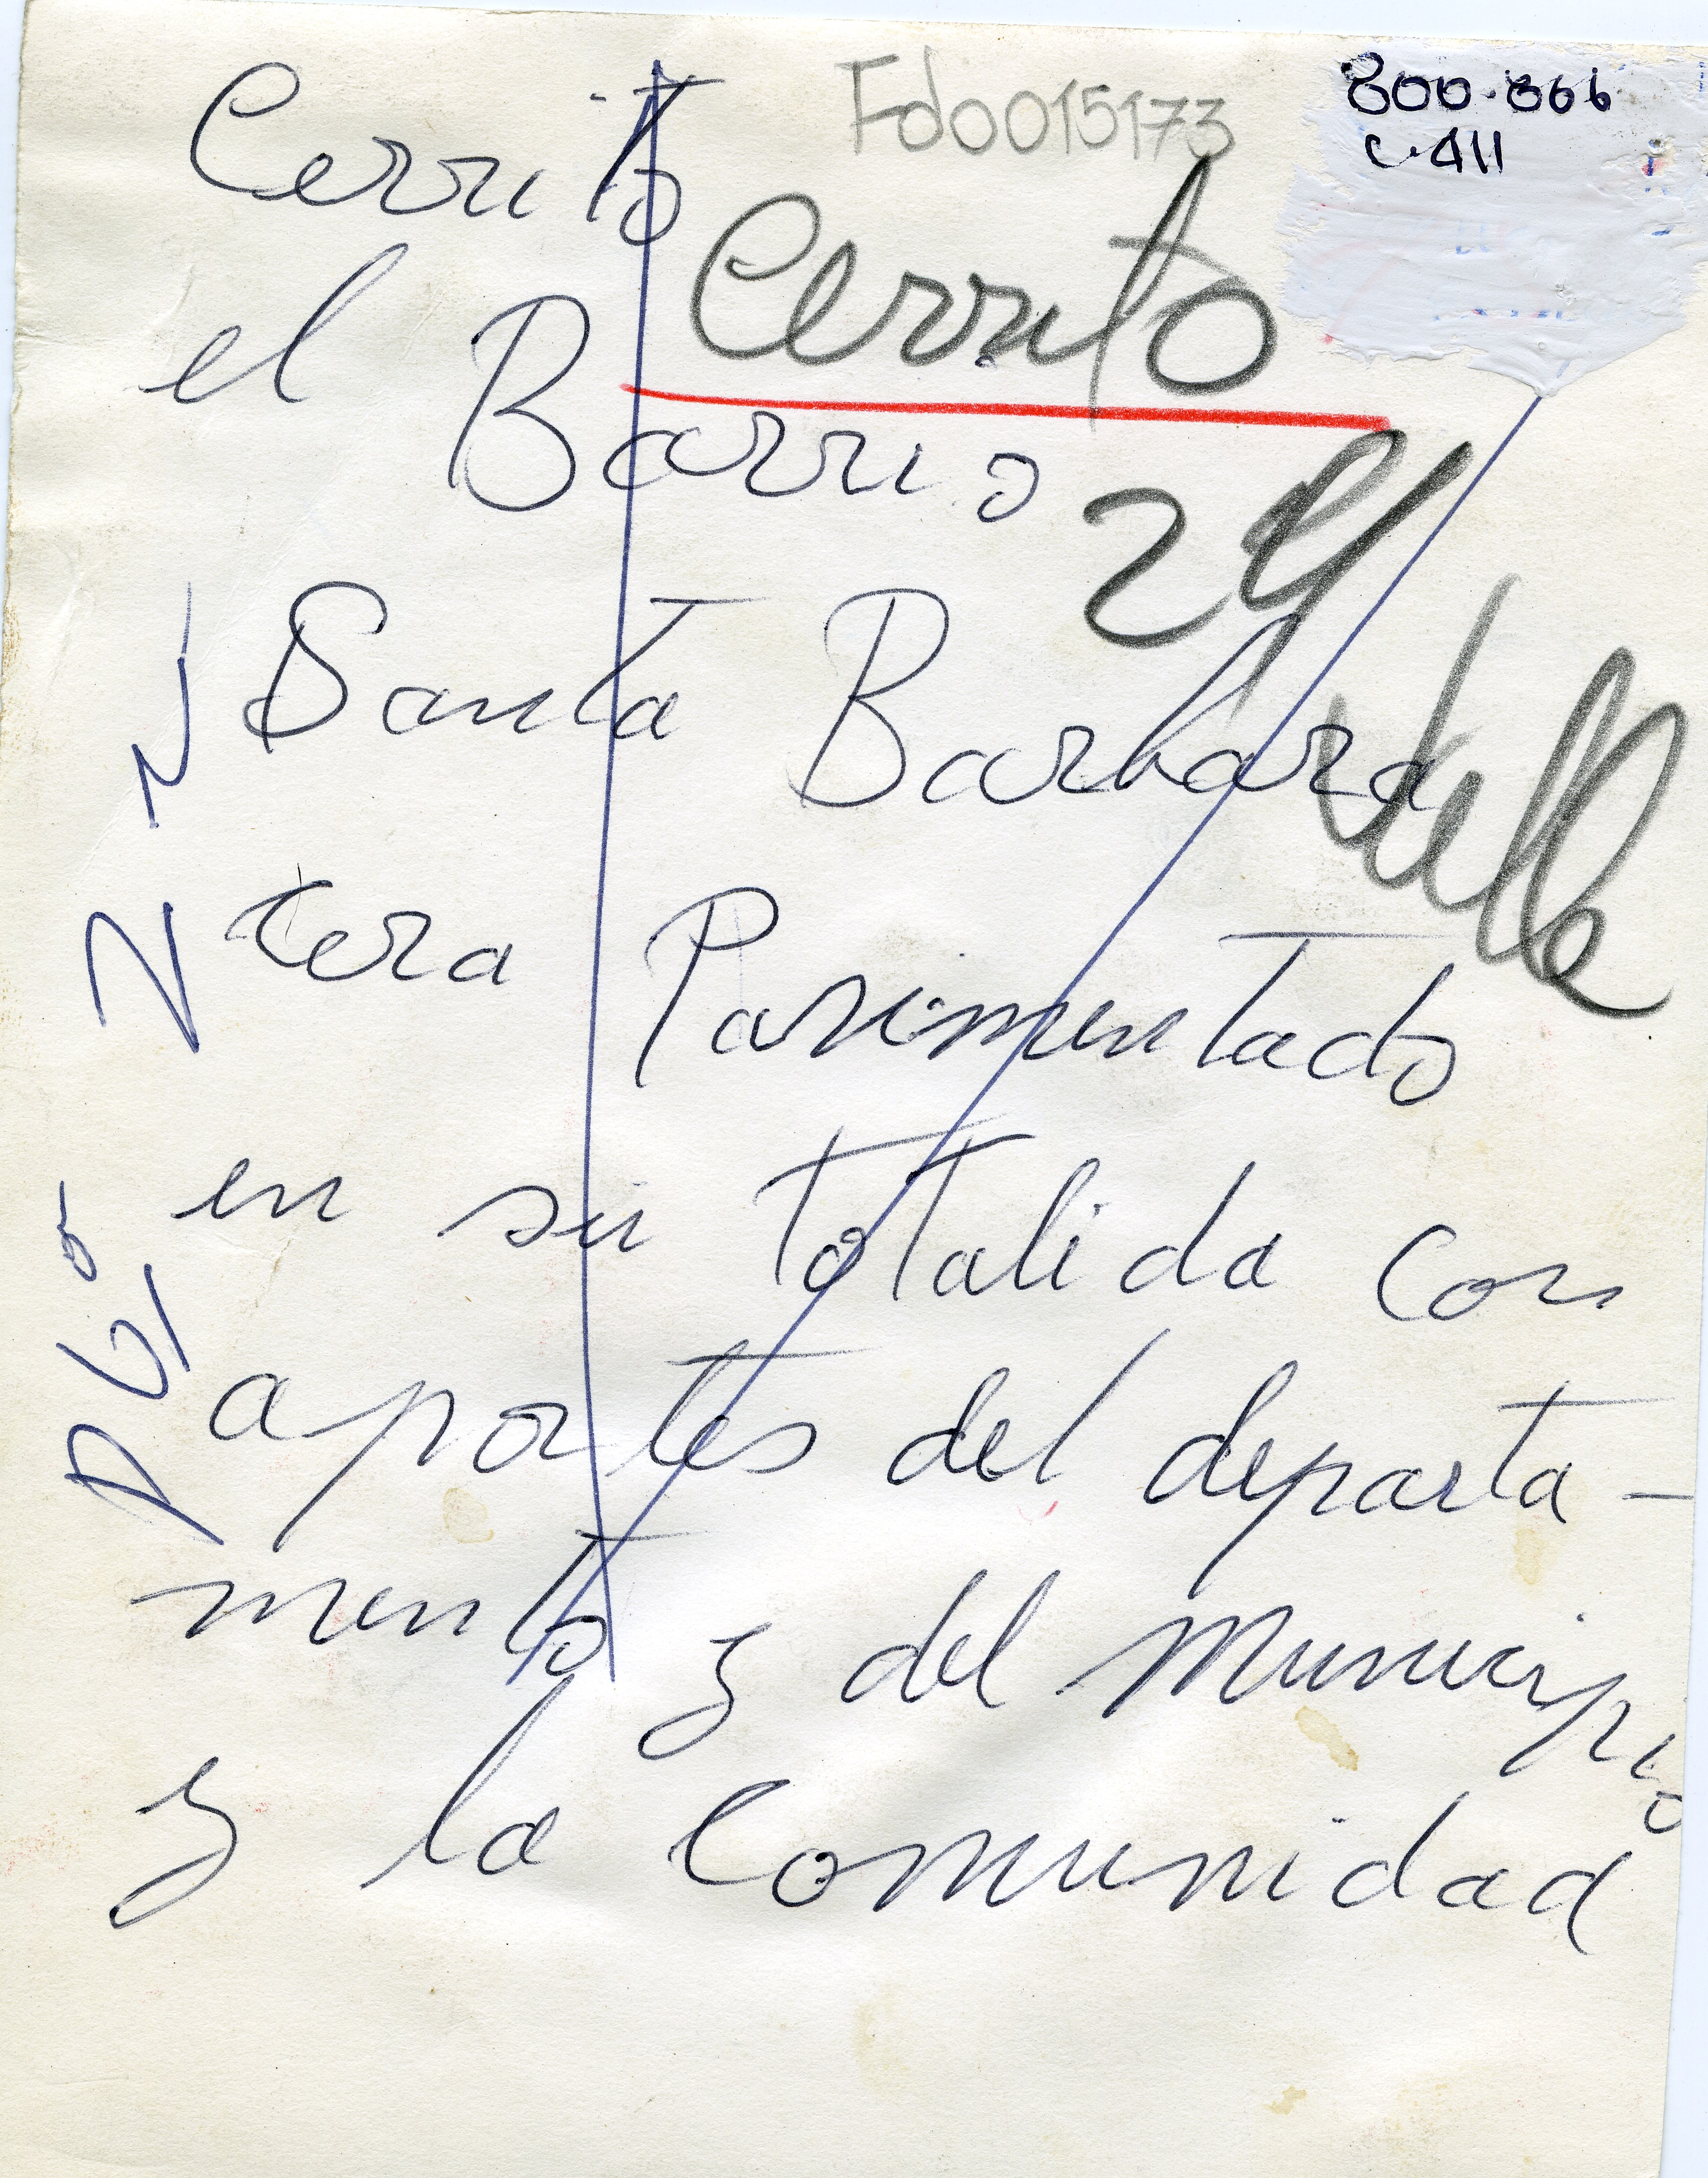 Fdo0015173
800.866
C.411
Cerrito
Cerrito
el Barrio
Valle
Santa Barbara
sera Pavimentado
en su totalida con
aportes del departa-
mento y del Municipio
y la Comunidad